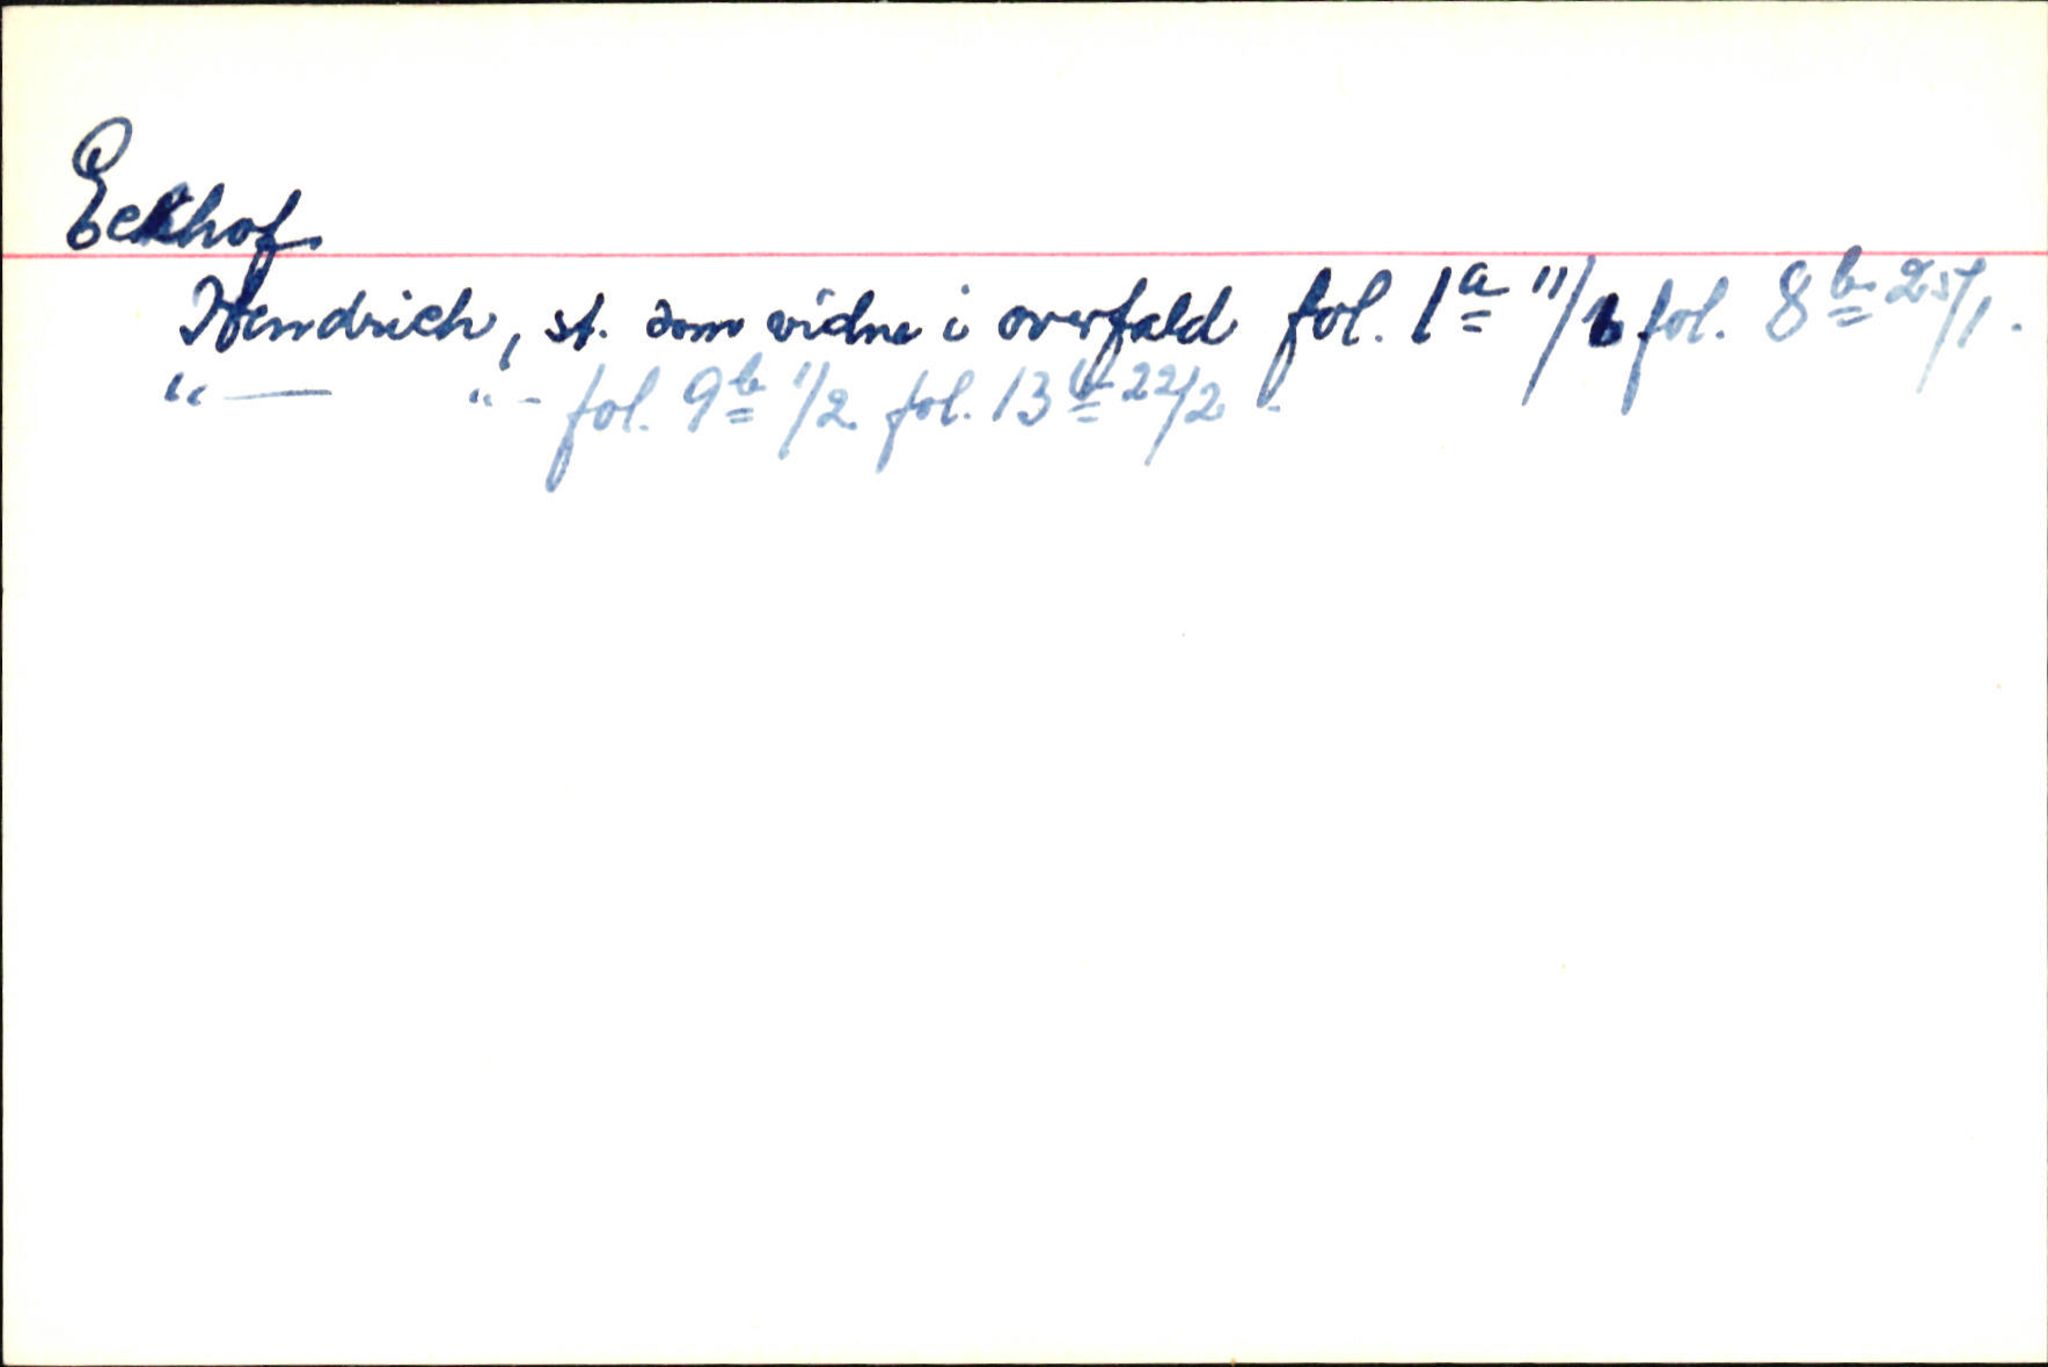 Eckhof.
Hendrich, st. som vidne i overfald fol. 1a 11/1 fol. 8b 25/1.
"— "- fol. 9b 1/2 fol. 13b 22/2.